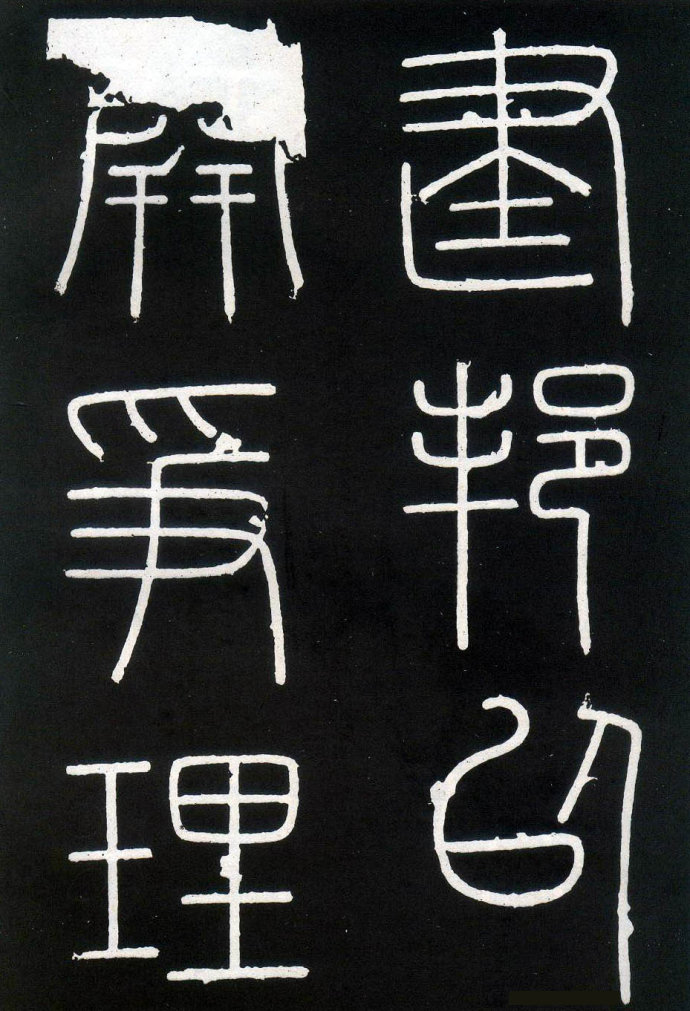 建邦以
開爭理